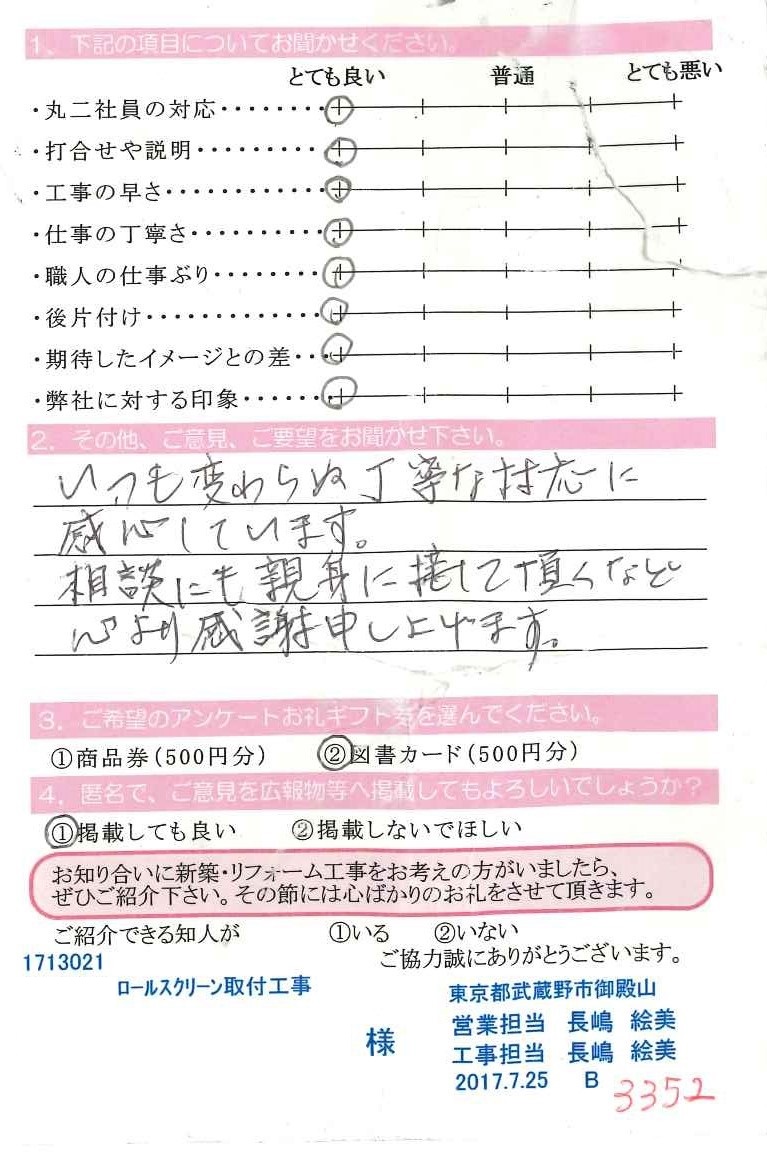 1. 下記の項目についてお聞かせください。
とても良い 普通 とても悪い
・丸二社員の対応・・・・・・・・
・打合せや説明・・・・・・・・・
・工事の早さ・・・・・・・・・・・
・仕事の丁寧さ・・・・・・・・・
・職人の仕事ぶり・・・・・・・
・後片付け・・・・・・・・・・・・
・期待したイメージとの差・・
・弊社に対する印象・・・・・・
2. その他、ご意見、ご要望をお聞かせ下さい。
いつも変わらぬ丁寧な対応に
感心しています。
相談にも親身に接して頂くなど
心より感謝申し上げます。
3. ご希望のアンケートお礼ギフト券を選んでください。
①商品券(500円分) ②図書カード(500円分)
4. 匿名で、ご意見を広報物等へ掲載してもよろしいでしょうか?
①掲載しても良い ②掲載しないでほしい
お知り合いに新築・リフォーム工事をお考えの方がいましたら、
ぜひご紹介下さい。その節には心ばかりのお礼をさせて頂きます。
ご紹介できる知人が ①いる ②いない
1713021 ご協力誠にありがとうございます。
ロールスクリーン取付工事 東京都武蔵野市御殿山
営業担当 長嶋 絵美
様
工事担当 長嶋 絵美
2017.7.25 B 3352